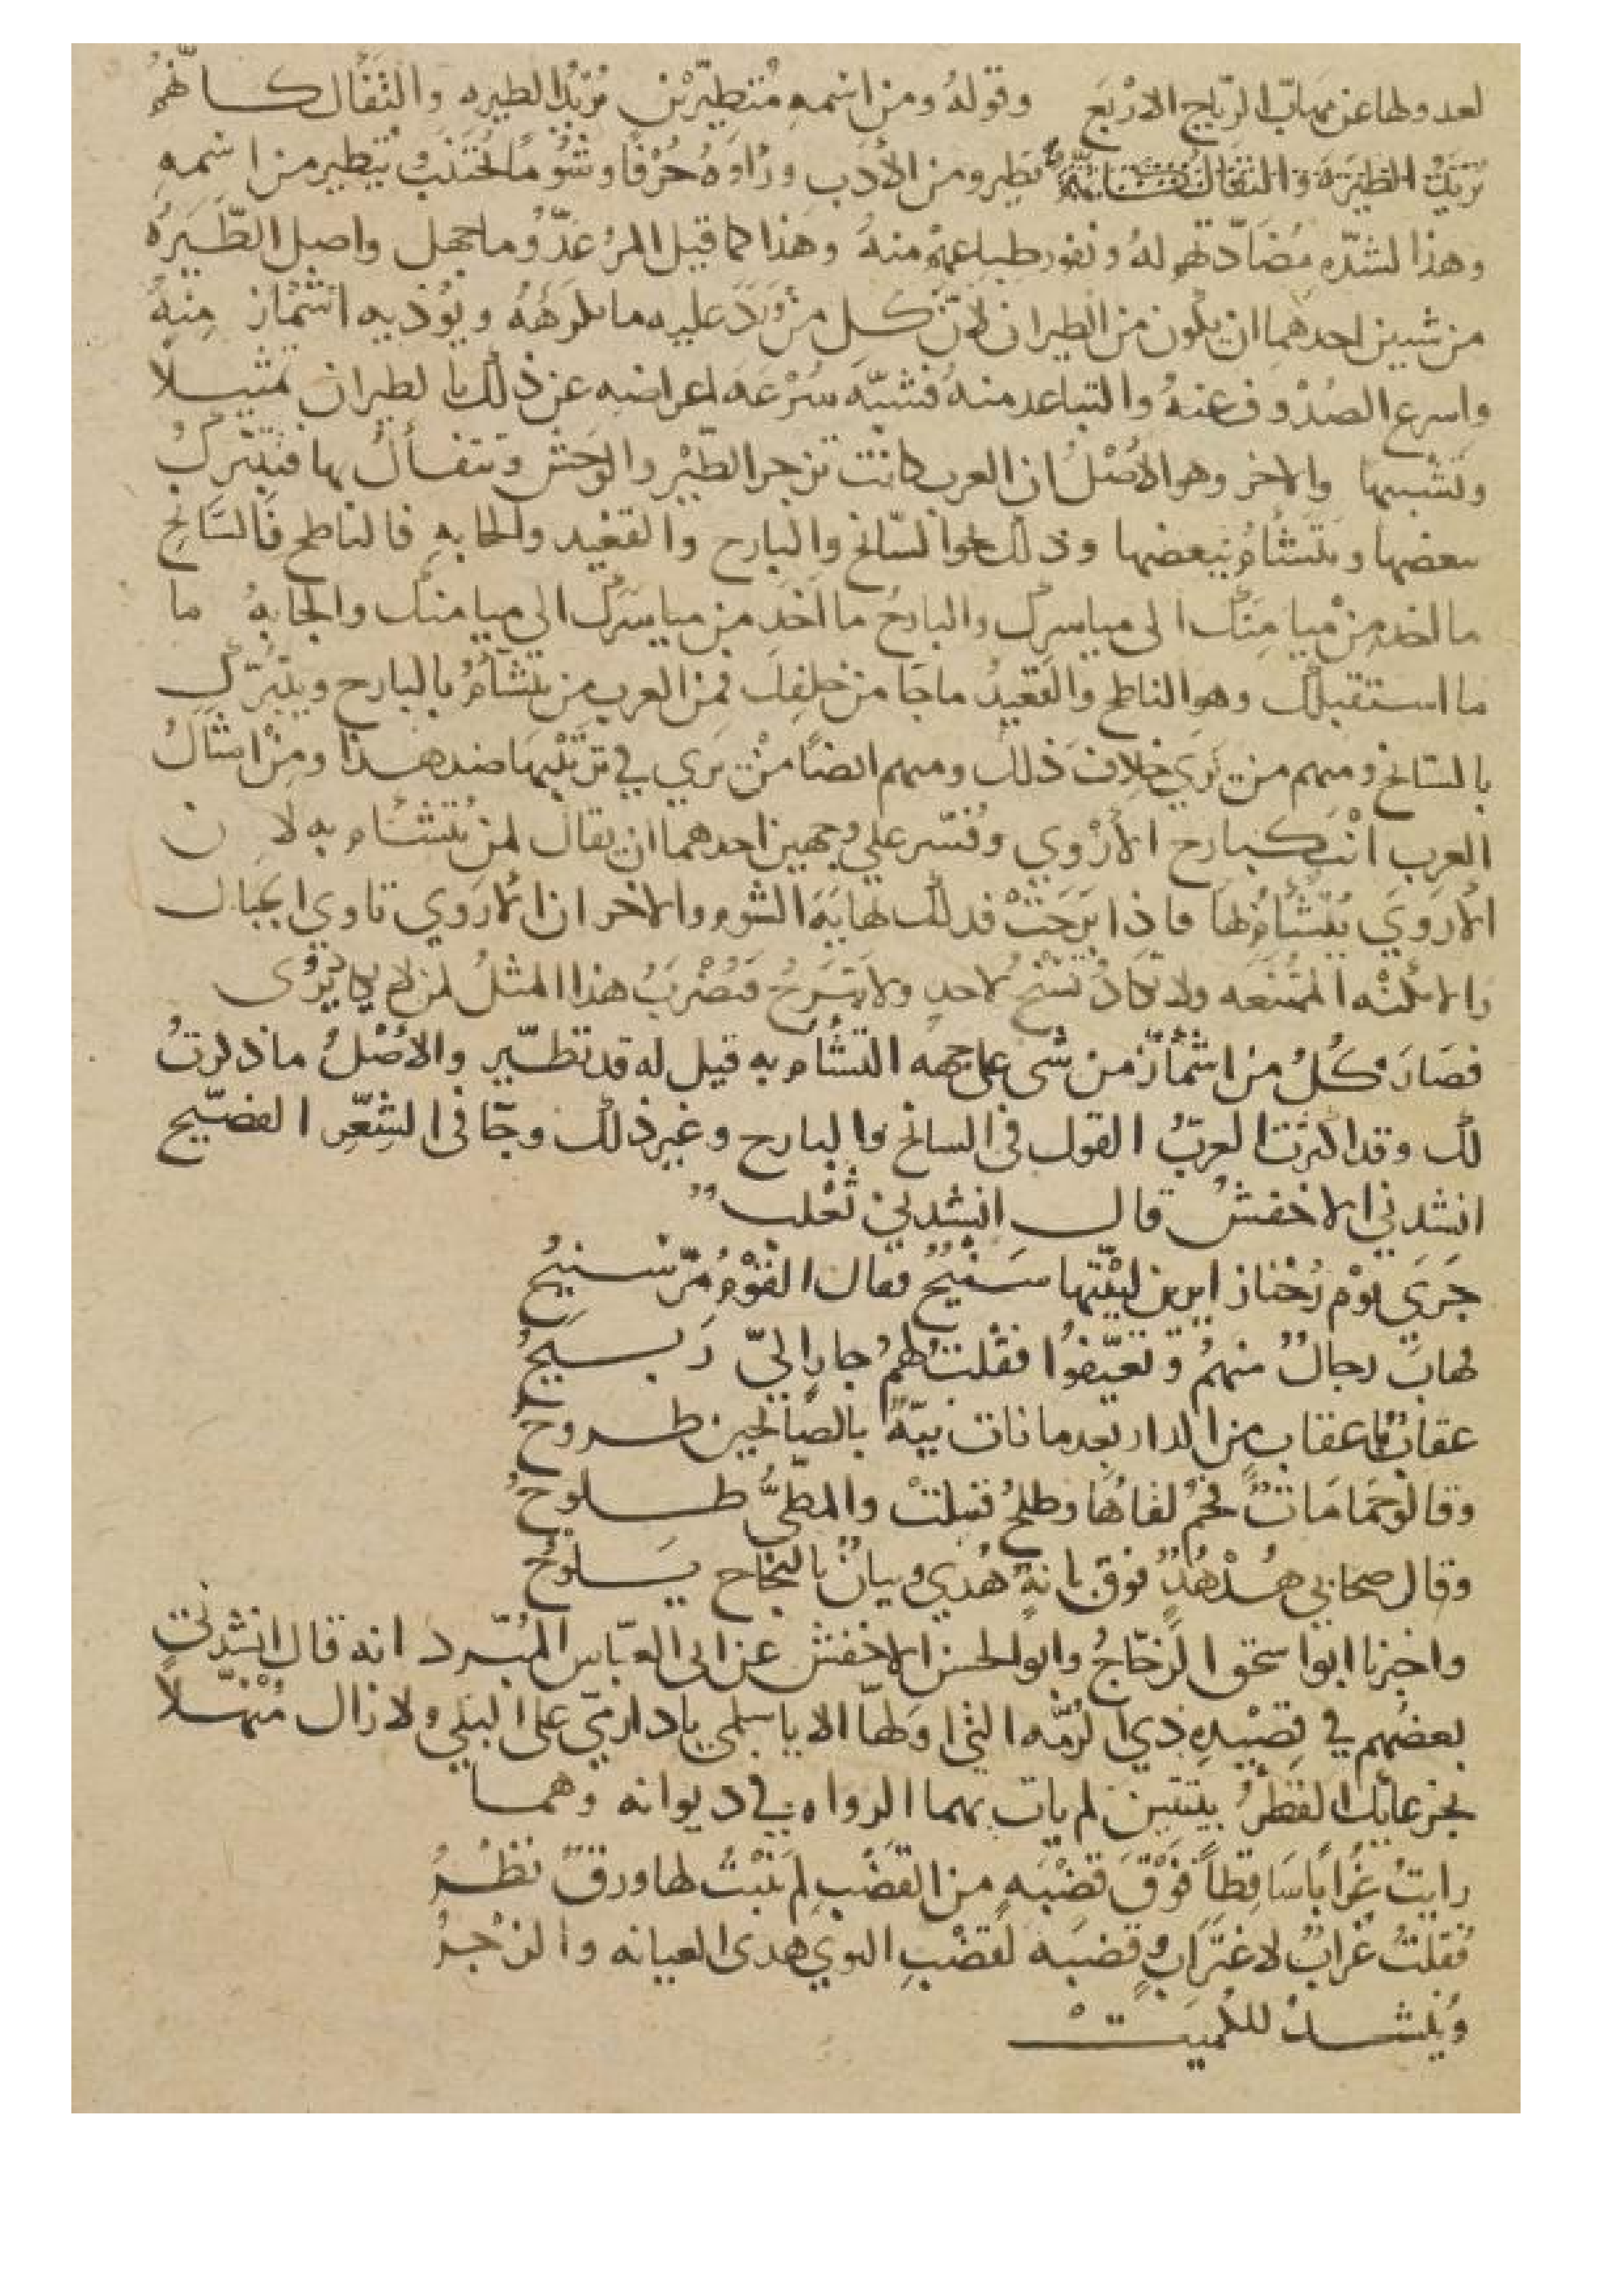 لعدولها عن مهابّ الرّياح الاربع وقولهُ ومن اسمهِ مُتطيّرين يُريدُ الطيره والتفَّال كانّهمُ
تطيرو من الأدَبِ وراَوهُ حُرْفًا وشُوْمًا يُجتنَبُ يتطير من اسمهِ
وهذا لشدّهِ مُضَادّتهم لهُ ونفور طباعهمْ منهُ وهذا كما قيل المرُ عدُّو ما جهل واصل الطِّيَرَهُ
من شيين احدهما ان يكون من الطيران لانّ كل من وَرَدَ عليه ما يكرَهُهُ ويُوذيه اشمُاز مِنهُ
واسرع الصُدْوف عنهُ والتباعد منهُ فشبّهَ سُرْعَهَ اعراضه عن ذلك بالطيران تمثيلًا
وتَشْبيها والاخر وهو الاصْلُ ان العرب كانت تزجر الطّيْر والوَحش وتتفأل بها فتبَرّكُ
ببعضها ويتَشأمُ ببعضها وذلك نحو السّانح والبارح والقعيد والجابهِ فالناطح فَالسَّانح
ما اخد مِنْ ميامِنكَ الى مياسِرك والبارحُ ما اخَد من مياسَرك الي ميامنك والجابهُ ما
ما استقبلك وهو الناطح والقعيدُ ماجَا من خلفِك فمن العرب من يتشأمُ بالبارح ويتبَرّك
بالسّانح ومنهم من يَرَي خِلافَ ذلك ومنهم ايضًا مَنْ يَري في ترتيْبهَا ضد هذا ومِنْ امثَالُ
العرب انْتَ كبارح الأرْوي وفُسّر علي وجهين احدهما ان يقال لمن يُتشأم به لان
الأروَيَ يُتشأمُ بهَا فاذا بَرَحَتْ فدلك نهايَهَ الشوم والاخر ان الأرَوي تاوي الجبال
والامكنْه الممُتنعَه ولا تكادُ تسْنحُ لاحدٍ ولا تبْرَحُ فيُضْرَبُ هذا المثلُ لمن لا يكا يرُى
فصَارَ كُلُ من اشمأزّ من شى علي جهه التشأم به قيل له قد تطيّر والاصْلُ ما ذكرتُ
لك وقد اكثرَت العربُ القول فى السانح والبارح وغير ذلك وجَآ فى الشِعّرِ الفصّيح
انشدني الاخفشُ قال انشدني ثَعْلب
جَرَى يَوْم رُحْنا زايرين لبيْتها سَنيْحٌ فقال القوْمُ مرّ سنيحُ
فهابَ رجالٌ منهمُ وتَعيّفوُا فقْلتُ لهمُ جارٍ اليّ رَبسيَحُ
عقابٌ باعقابٍ من الدار بَعد ما نات نيّةٌ بالصّالحين طروحُ
وقالوُ حَمَامَاتٌ فحُمّ لقاوُهَا وطلحٌ فنيلتْ والمطيُّ طلوحُ
وقال صحابي هُدْهُدٌ فوَق بانةٍ هُدي وبيانٌ بالنجاح يَلوحُ
واخبرنا ابوا سحق الزجّاجُ وابو الحسن الاخفش عن ابى العبّاس المُبّرد انه قال انشدنى
بعضُهم في قصيْدهِ ذي الرُمّه التي اوَلهآ الا يا سلمى يا دارميّ على البلي ولا زال مُنْهلًا
بجرعايك القطرُ بيْتيْنِ لم يات بهما الرواه في ديوانه وهما
رايتُ غُرابًا سَاقِطًا فوْقَ قضْبَهٍ من القضْبِ لم يَنْبتُ لها ورقٌ نضْرُ
فقلتُ غُرابٌ لاغترَابٍ وقضبَه لقضْبِ النوي هدى العيافه والزجرُ
ويُنشدُ للكُميَتْ